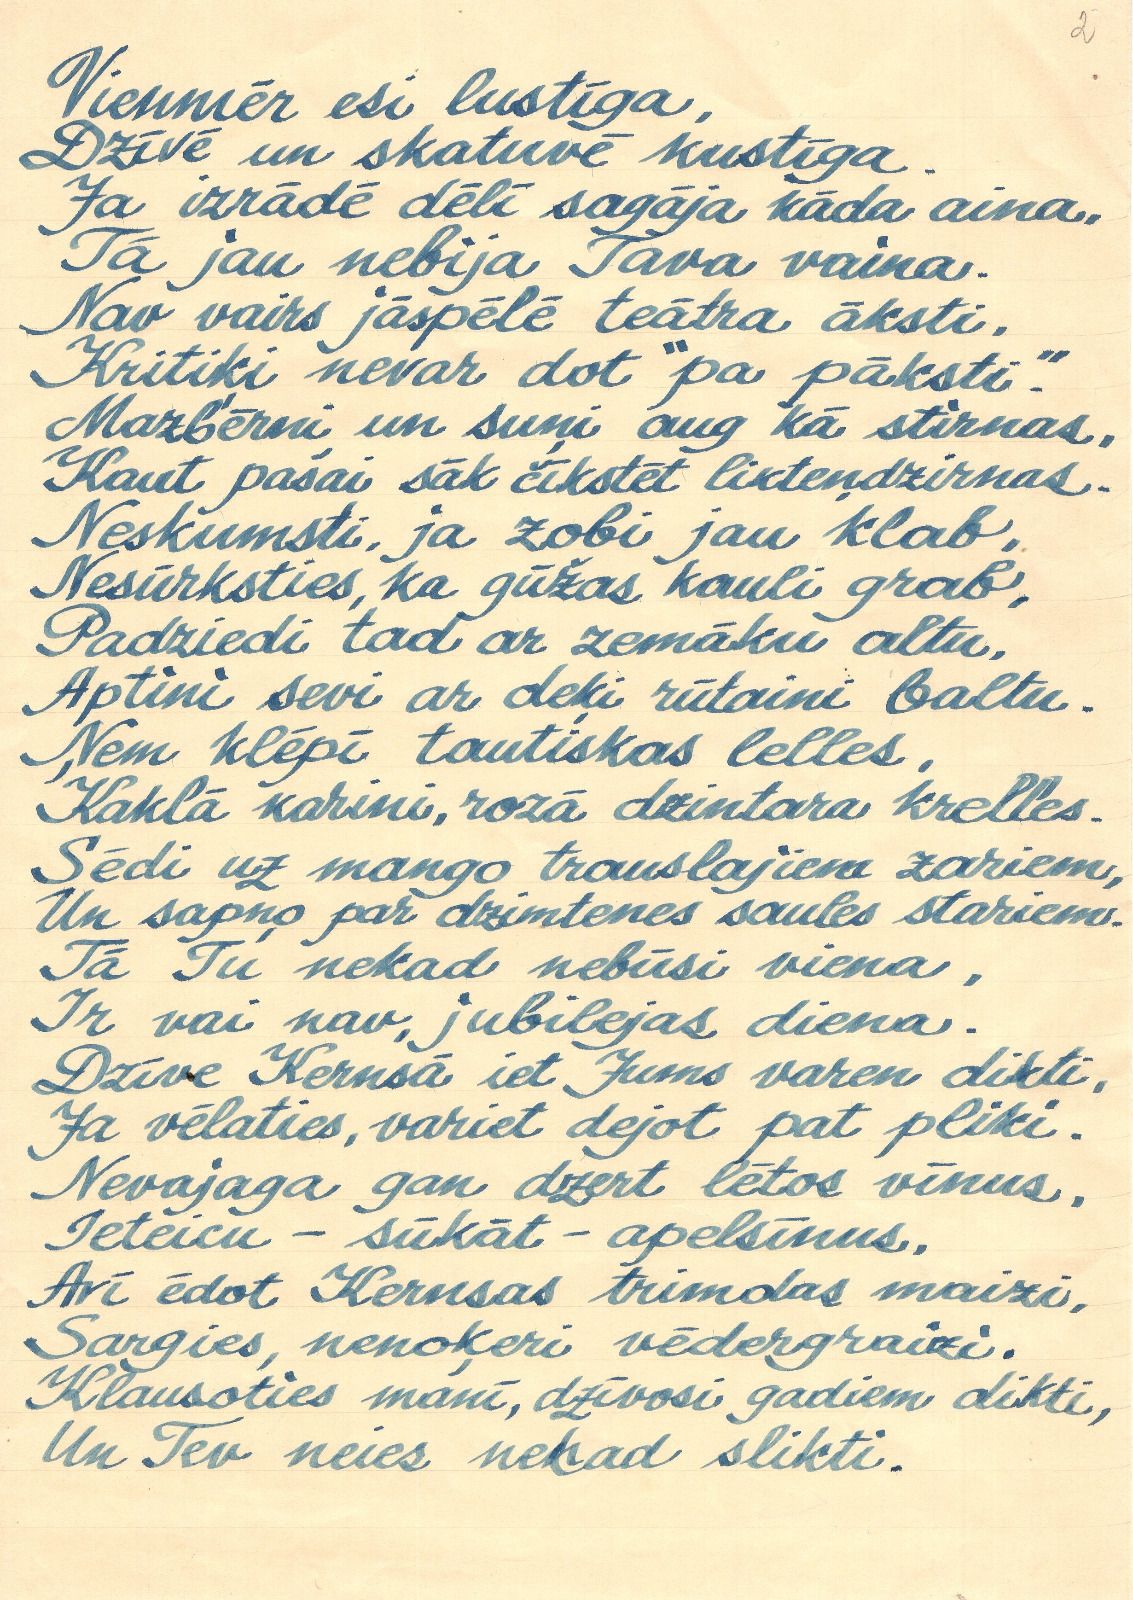 2
Vienmēr esi lustīga,
Dzīvē un skatuvē kustīga.
Ja izrādē dēlī sagāja kāda aina,
Tā jau nebija Tava vaina.
Nav vairs jāspēlē teātra āksti,
Kritiķi nevar dot "pa pāksti".
Mazbērni un suņi aug kā stirnas,
Kaut pašai sāk čīkstēt liktendzirnas.
Neskumsti, ja zobi jau kļab,
Nesūrksties, ka gūžas kauli grab,
Padziedi tad ar zemāku altu,
Aptini sevi ar deķi rūtaini baltu.
Ņem klēpī tautiskas lelles,
Kaklā karini, rozā dzintara krelles.
Sēdi uz mango trauslajiem zariem,
Un sapņo par dzimtenes saules stariem.
Tā Tu nekad nebūsi viena,
Ir vai nav, jubilejas diena.
Dzīve Kernsā iet Jums varen dikti,
Ja vēlaties, variet dejot pat pliki.
Nevajaga gan dzert lētos vīnus,
Ieteicu - sūkāt - apelsīnus,
Arī ēdot Kernsas trimdas maizi,
Sargies, nenoķeri vēdergraizi.
Klausoties manī, dzīvosi gadiem dikti,
Un Tev neies nekad slikti.